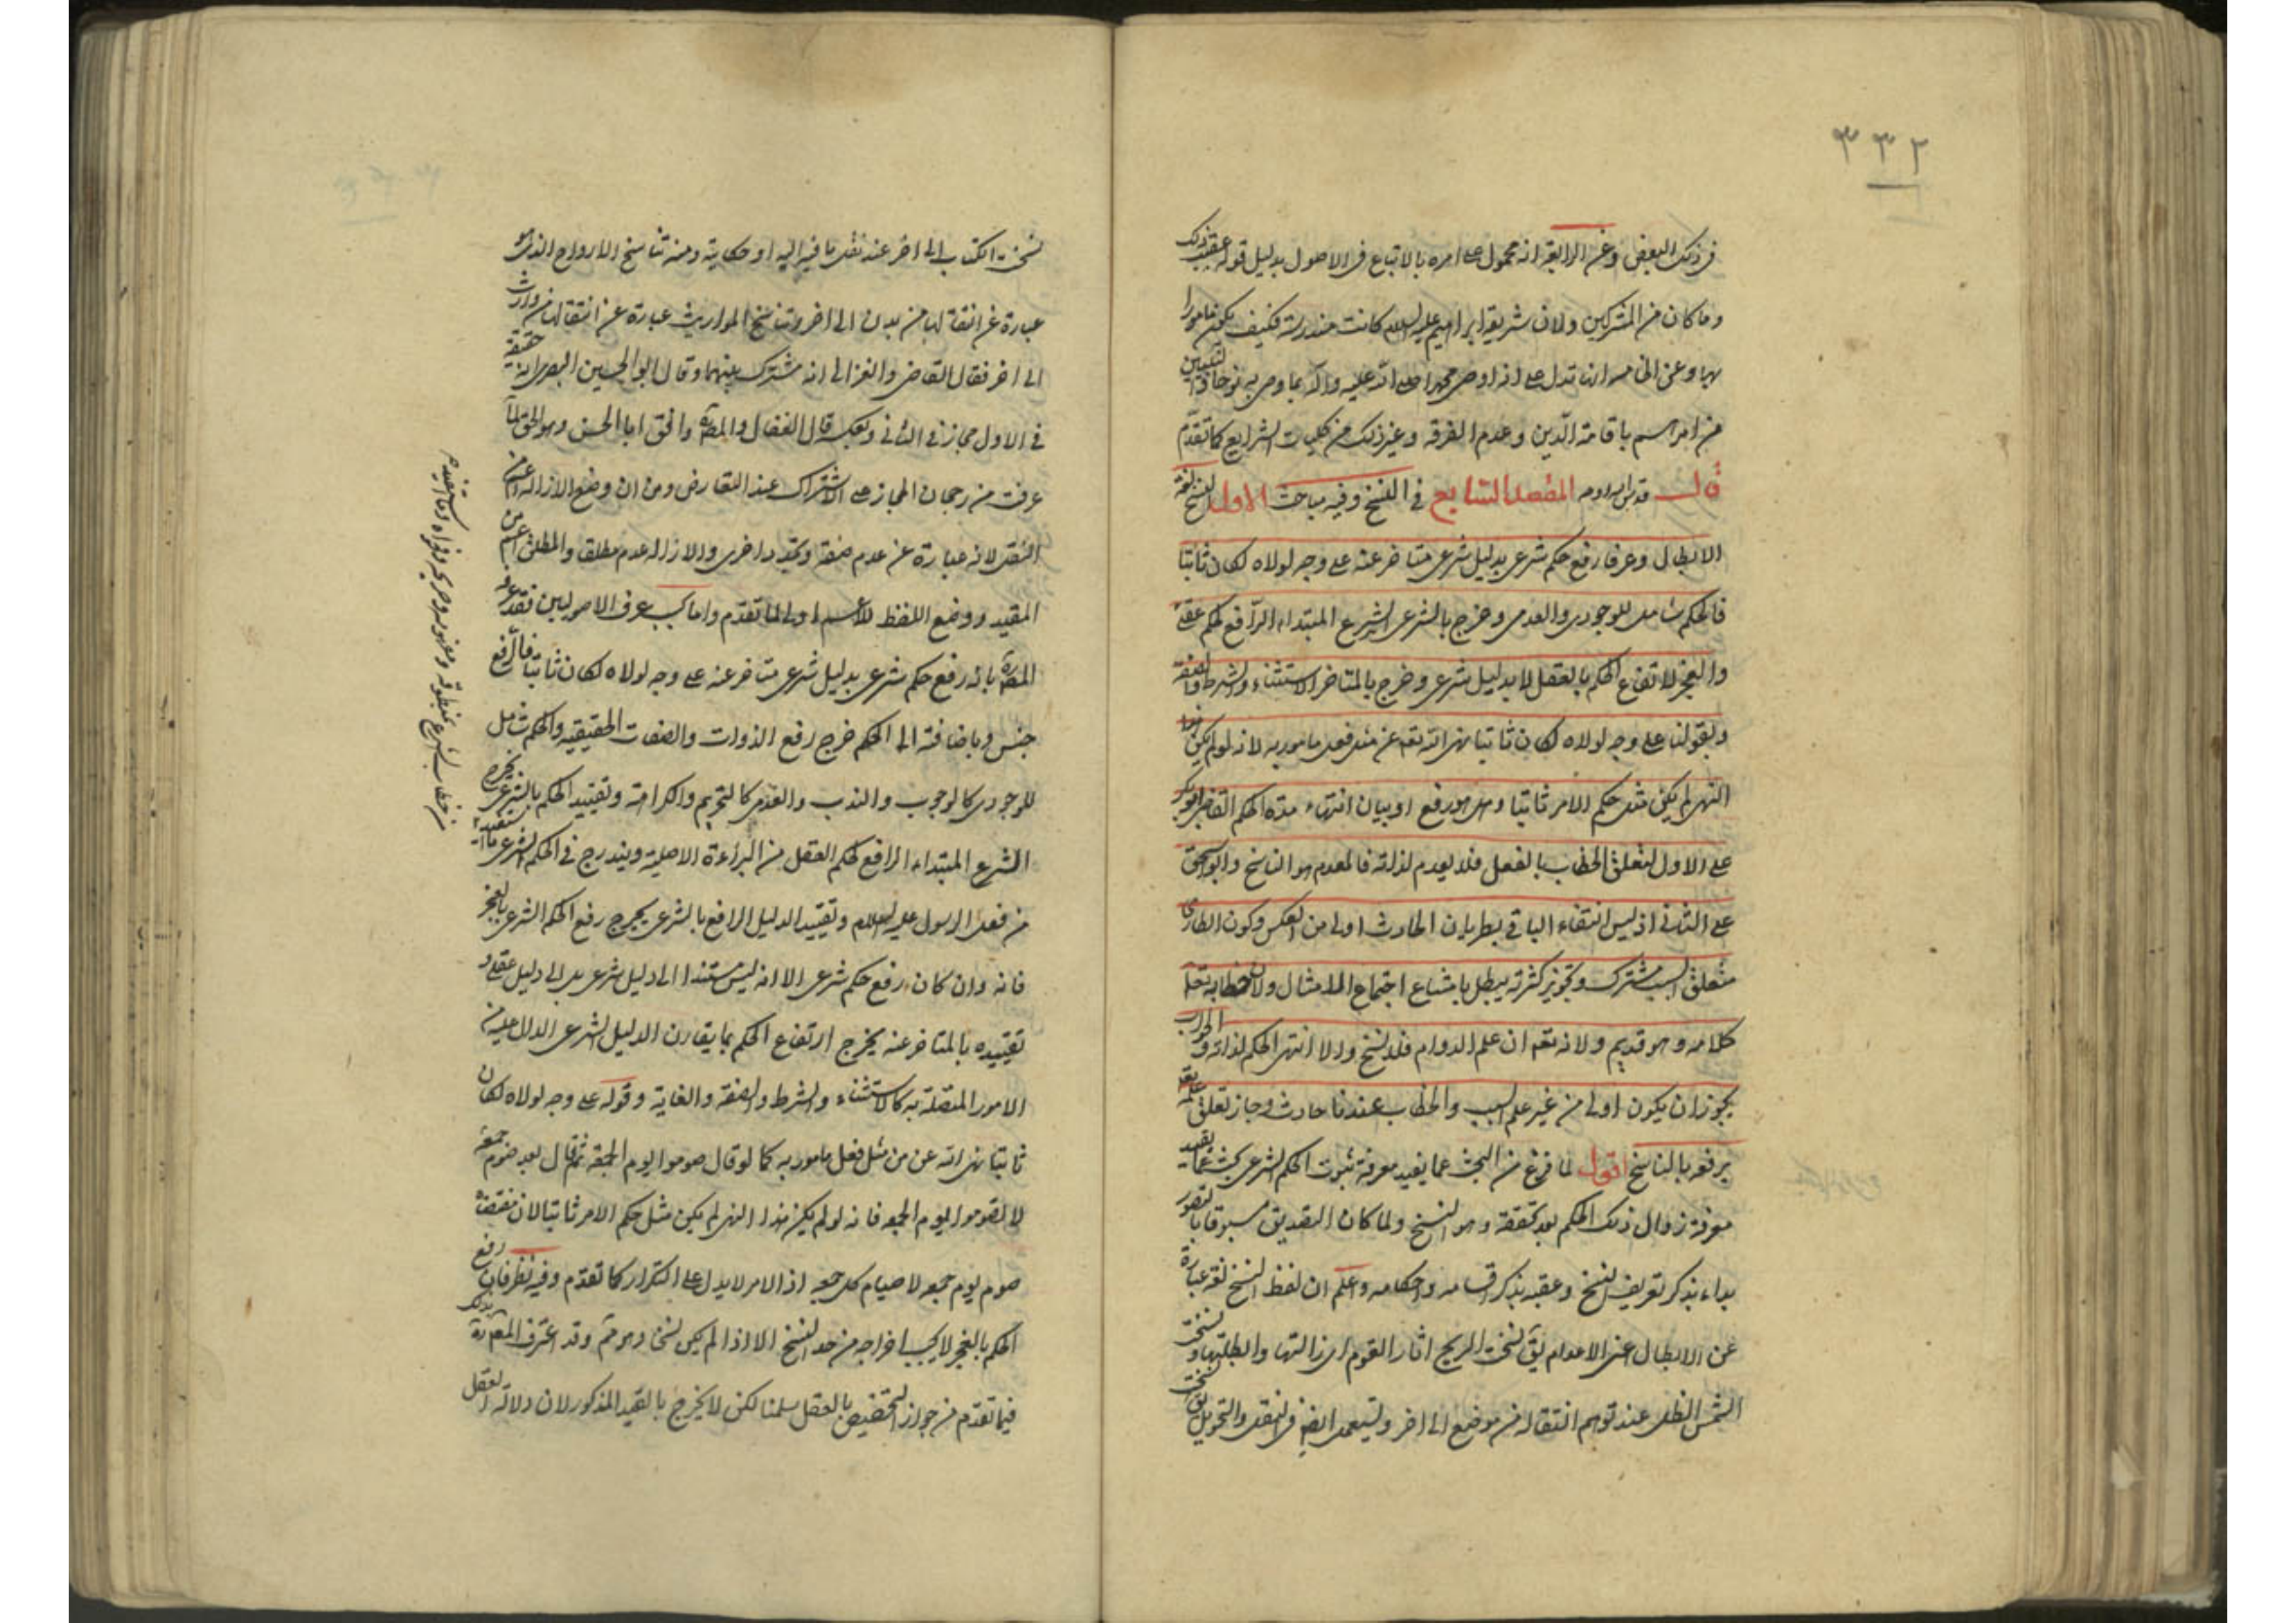 ٣٣٢
فى ذلك البعض وعن الرابعة انه محمول على امره بالاتباع فى الاصول بدليل قوله عقيب ذلك
وما كان من المشركين ولان شريعة ابراهيم عليه السلام كانت مندرسة فكيف يكون مامورا
بها وعن الخامسة انها تدل على انه اوصى محمدا صلى الله عليه واله بما وصى به نوحا والنبيين
من امرهم باقامة الدين وعدم التفرقة وغير ذلك من كليات الشرايع كما تقدم
قال قدس الله روحه المقصد السابع فى النسخ وفيه مباحث الاول النسخ لغة
الابطال وعرفا رفع حكم شرعى بدليل شرعى متاخر عنه على وجه لولاه لكان ثابتا
فالحكم شامل للوجودى والعدمى وخرج بالشرعى الشرع المبتداء الرافع لحكم عقلى
والعجز لا تفاع الحكم بالعقل لا بدليل شرعى وخرج بالمتاخر الاستثناء والشرط والصفة
وبقولنا على وجه لولاه لكان ثابتا نهى الله تعه عن مثل فعل مامور به لانه لو لم يكن هذا
النهى لم يكن مثل حكم الامر ثابتا وهل هو رفع او بيان انتهاء مدة الحكم القاضى ابو بكر
على الاول لتعلق الخطاب بالفعل فلا يعدم لذاته فالمعدم هو الناسخ وابو اسحق
على الثانى اذ ليس انتفاء الباقى بطريان الحادث اولى من العكس وكون الطارى
متعلق السبب مشترك وتجويز كثرته يبطل بامتناع اجتماع الامثال ولان خطابه تعالى
كلامه وهو قديم ولانه تعه ان علم الدوام فلا نسخ والا انتهى الحكم لذاته والجواب
يجوز ان يكون اولى من غير علم السبب والخطاب عندنا حادث وجاز تعلق علمه تعه
برفعه بالناسخ اقول لما فرغ من البحث عما يفيد معرفة ثبوت الحكم الشرعى بحث عما يفيد
معرفة زوال ذلك الحكم بعد تحققه وهو النسخ ولما كان التصديق مسبوقا بالتصور
بداء بذكر تعريف النسخ وعقبه بذكر اقسامه واحكامه واعلم ان لفظ النسخ لغة عبارة
عن الابطال اعنى الاعدام يق نسخت الريح اثار القوم اى ازالتها وابطلتها ونسخت
الشمس الظل عند توهم انتقاله من موضع الى اخر ويستعمل ايضا فى النقل والتحويل يق نسخت
نسخت الكتاب الى اخر عند نقل ما فيه اليه او حكايته ومنه تناسخ الارواح الذى هو
عبارة عن انتقالها من بدن الى اخر وتناسخ المواريث عبارة عن انتقالها من وارث
الى اخر فقال القاضى والغزالى انه مشترك بينهما وقال ابو الحسين البصرى انه حقيقة
فى الاول مجاز فى الثانى وبعكسه قال القفال والمصه وافق ابا الحسين وهو الحق لما
عرفت من رجحان المجاز على الاشتراك عند التعارض ومن ان وضع الازالة اعم من
النقل لانه عبارة عن عدم صفة وتجدد اخرى والازالة عدم مطلق والمطلق اعم من
المقيد ووضع اللفظ للاعم اولى لما تقدم واما بحسب عرف الاصوليين فقد عرفه
المصه بانه رفع حكم شرعى بدليل شرعى متاخر عنه على وجه لولاه لكان ثابتا فالرفع
جنس وباضافته الى الحكم خرج رفع الذوات والصفات الحقيقية والحكم شامل
للوجودى كالوجوب والندب والعدمى كالتحريم والكراهة وتقييد الحكم بالشرعى يخرج
الشرع المبتداء الرافع لحكم العقل من البراءة الاصلية ويندرج فى الحكم الشرعى ما استفيد
من فعل الرسول عليه السلام وتقييد الدليل الرافع بالشرعى يخرج رفع الحكم الشرعى بالعجز
فانه وان كان رفع حكم شرعى الا انه ليس مستندا الى دليل شرعى بل الى دليل عقلى و
تقييده بالمتاخر عنه يخرج ارتفاع الحكم بما يقارن الدليل الشرعى الدال عليه من
الامور المتصلة به كالاستثناء والشرط والصفة والغاية وقوله على وجه لولاه لكان
ثابتا نهى الله عن مثل فعل مامور به كما لو قال صوموا يوم الجمعة ثم قال بعد صوم جمعة
لا تصوموا يوم الجمعة فانه لو لم يكن هذا النهى لم يكن مثل حكم الامر ثابتا لان مقتضاه
صوم يوم جمعة لا صيام كل جمعة اذ الامر لا يدل على التكرار كما تقدم وفيه نظر فان رفع
الحكم بالعجز لا يجب اخراجه من حد النسخ الا اذا لم يكن نسخا وهو مم وقد اعترف المصه بذلك
فيما تقدم من جواز التخصيص بالعقل سلمنا لكن لا يخرج بالقيد المذكور لان دلالة العقل
من خطاب الشرع بمنطوقه ومفهومه وصريحه وفحواه وما استفيد